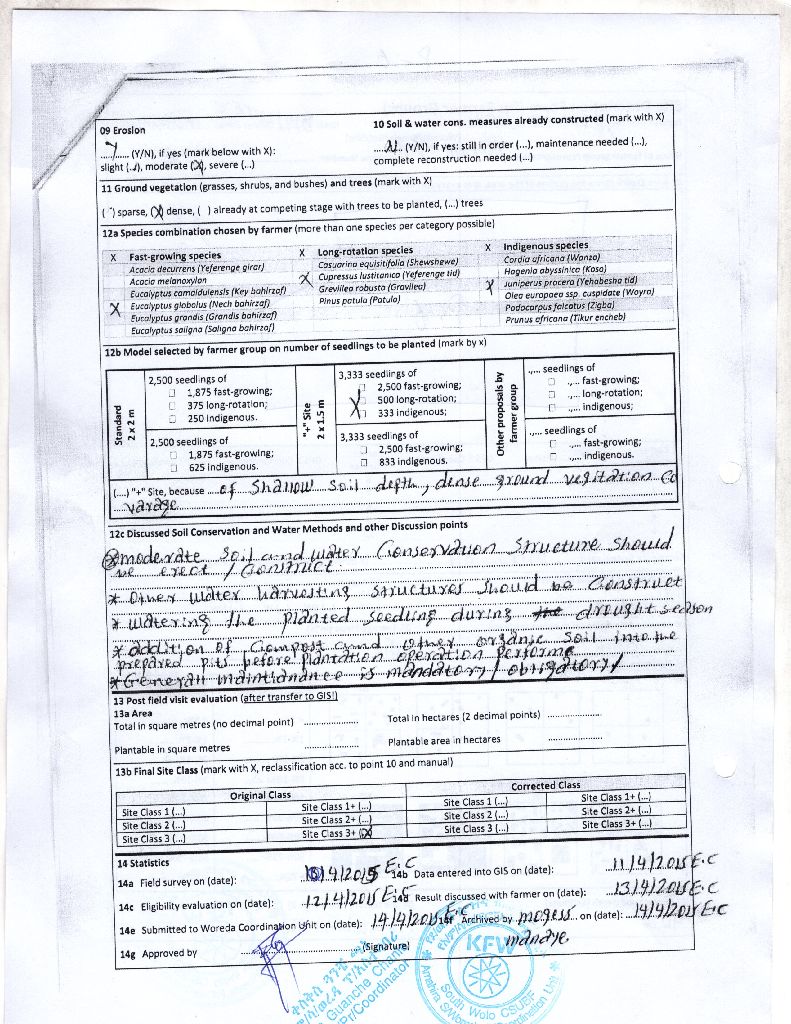 09 Erosion
10 Soil & water cons. measures already constructed (mark with X)
..Y..... (Y/N), if yes (mark below with X):
...N.... (Y/N), if yes: still in order (...), maintenance needed (...),
slight (...), moderate (X), severe (...)
complete reconstruction needed (...)
11 Ground vegetation (grasses, shrubs, and bushes) and trees (mark with X)
( ) sparse, (X) dense, ( ) already at competing stage with trees to be planted, (...) trees
12a Species combination chosen by farmer (more than one species per category possible)
X Fast-growing species
Acacia decurrens (Yeferenge girar)
Acacia melanoxylon
Eucalyptus camaldulensis (Key bahirzaf)
X Eucalyptus globulus (Nech bahirzaf)
Eucalyptus grandis (Grandis bahirzaf)
Eucalyptus saligna (Saligna bahirzaf)
X Long-rotation species
Casuarina equisitifolia (Shewshewe)
X Cupressus lustitanica (Yeferenge tid)
Grevillea robusta (Gravilea)
Pinus patula (Patula)
X Indigenous species
Cordia africana (Wanza)
Hagenia abyssinica (Koso)
X Juniperus procera (Yehabesha tid)
Olea europaea ssp. cuspidate (Wayra)
Podocarpus falcatus (Zigba)
Prunus africana (Tikur encheb)
12b Model selected by farmer group on number of seedlings to be planted (mark by x)
Standard
2 x 2 m
2,500 seedlings of
☐ 1,875 fast-growing;
☐ 375 long-rotation;
☐ 250 indigenous.
2,500 seedlings of
☐ 1,875 fast-growing;
☐ 625 indigenous.
"+" Site
2 x 1.5 m
3,333 seedlings of
☐ 2,500 fast-growing;
X 500 long-rotation;
☐ 333 indigenous;
3,333 seedlings of
☐ 2,500 fast-growing;
☐ 833 indigenous.
Other proposals by
farmer group
.,... seedlings of
☐ .,... fast-growing;
☐ .,... long-rotation;
☐ .,... indigenous;
.,... seedlings of
☐ .,... fast-growing;
☐ .,... indigenous.
(...) "+" Site, because ...of Shallow Soil depth, dense ground vegitation Co
varage
12c Discussed Soil Conservation and Water Methods and other Discussion points
* moderate Soil and water Conservation Structure Should
be erect / Construct
* Other water harvesting structures should be Construct
* watering the planted seedling during the drought season
* addition of Compost and other organic Soil into the
prepared pits before Plantation operation Performe
* Generall maintianance is mandatory / obligatory /
13 Post field visit evaluation (after transfer to GIS!)
13a Area
Total in square metres (no decimal point) ..................
Total in hectares (2 decimal points) ..................
Plantable in square metres ..................
Plantable area in hectares ..................
13b Final Site Class (mark with X, reclassification acc. to point 10 and manual)
Original Class
Corrected Class
Site Class 1 (...) Site Class 1+ (...) Site Class 1 (...) Site Class 1+ (...)
Site Class 2 (...) Site Class 2+ (...) Site Class 2 (...) Site Class 2+ (...)
Site Class 3 (...) Site Class 3+ (X) Site Class 3 (...) Site Class 3+ (...)
14 Statistics
14a Field survey on (date): /4/2015 E.C
14b Data entered into GIS on (date): 11/4/2015 E.C
14c Eligibility evaluation on (date): 12/4/2015 E.C
14d Result discussed with farmer on (date): 13/4/2015 E.C
14e Submitted to Woreda Coordination Unit on (date): 14/4/2015 E.C
14f Archived by mogess on (date): 14/4/2015 E.C
mandaye
14g Approved by .................. (Signature)
Guanche
Pr/Coordinator
KFW
South Wolo CSUBF